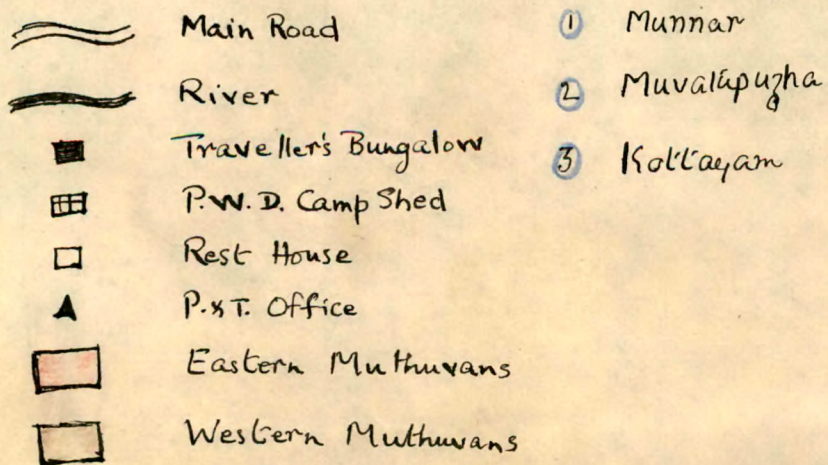 Main Road
River
Traveller's Bungalow
P.W.D. Camp Shed
Rest House
P. & T. Office
Eastern Muthuvans
Western Muthuvans
1 Munnar
2 Muvattupuzha
3 Kottayam